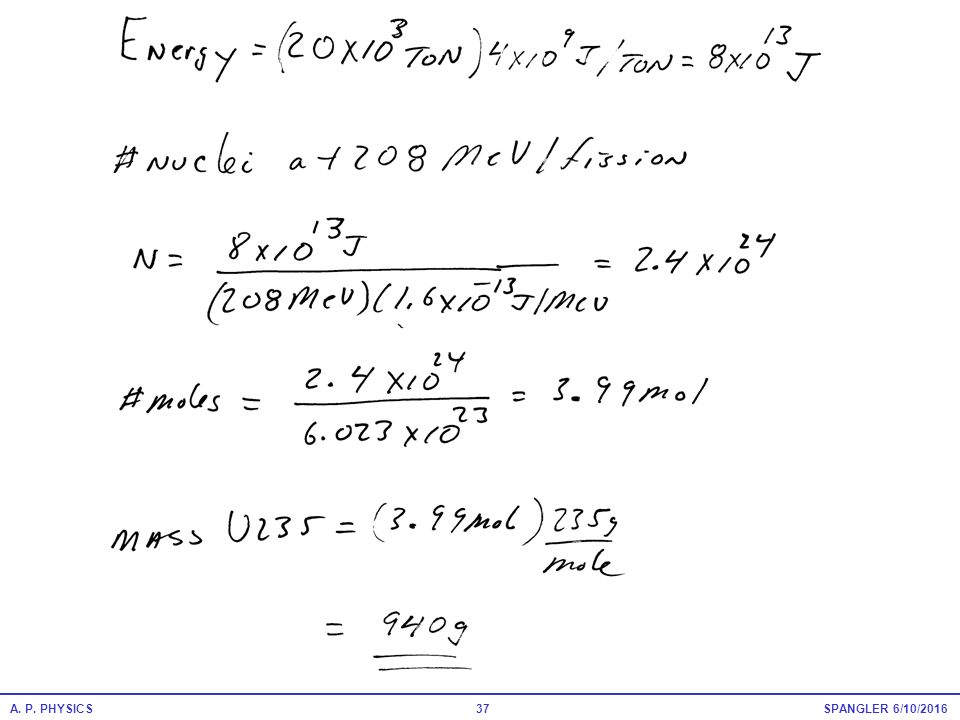 Energy = (20 x 10³ TON) 4 x 10⁹ J/TON = 8 x 10¹³ J
# Nuclei at 208 MeV / fission
N = 8 x 10¹³ J / (208 MeV)(1.6 x 10⁻¹³ J/MeV = 2.4 x 10²⁴
# moles = 2.4 x 10²⁴ / 6.023 x 10²³ = 3.99 mol
MASS U235 = (3.99 mol) 235g / mole
= 940g
A. P. PHYSICS 37 SPANGLER 6/10/2016